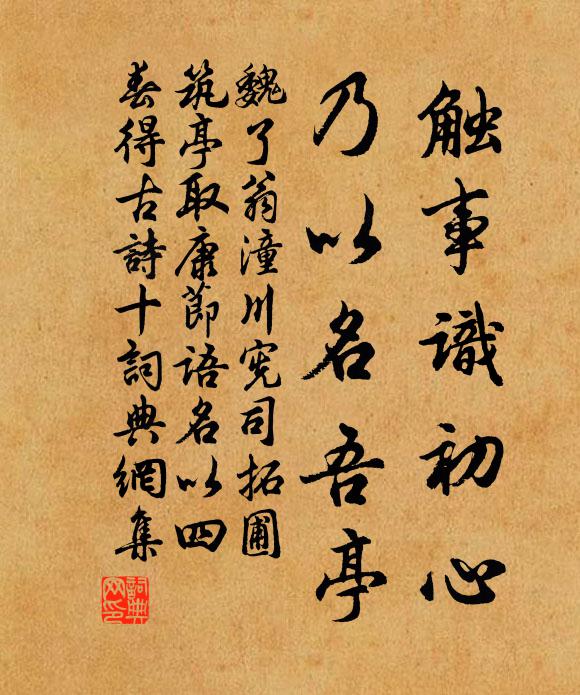 触事識初心
乃以名吾亭
魏了翁潼川宪司拓圃
筑亭取康節語名以四
春得古詩十詞典網集
詞典网印